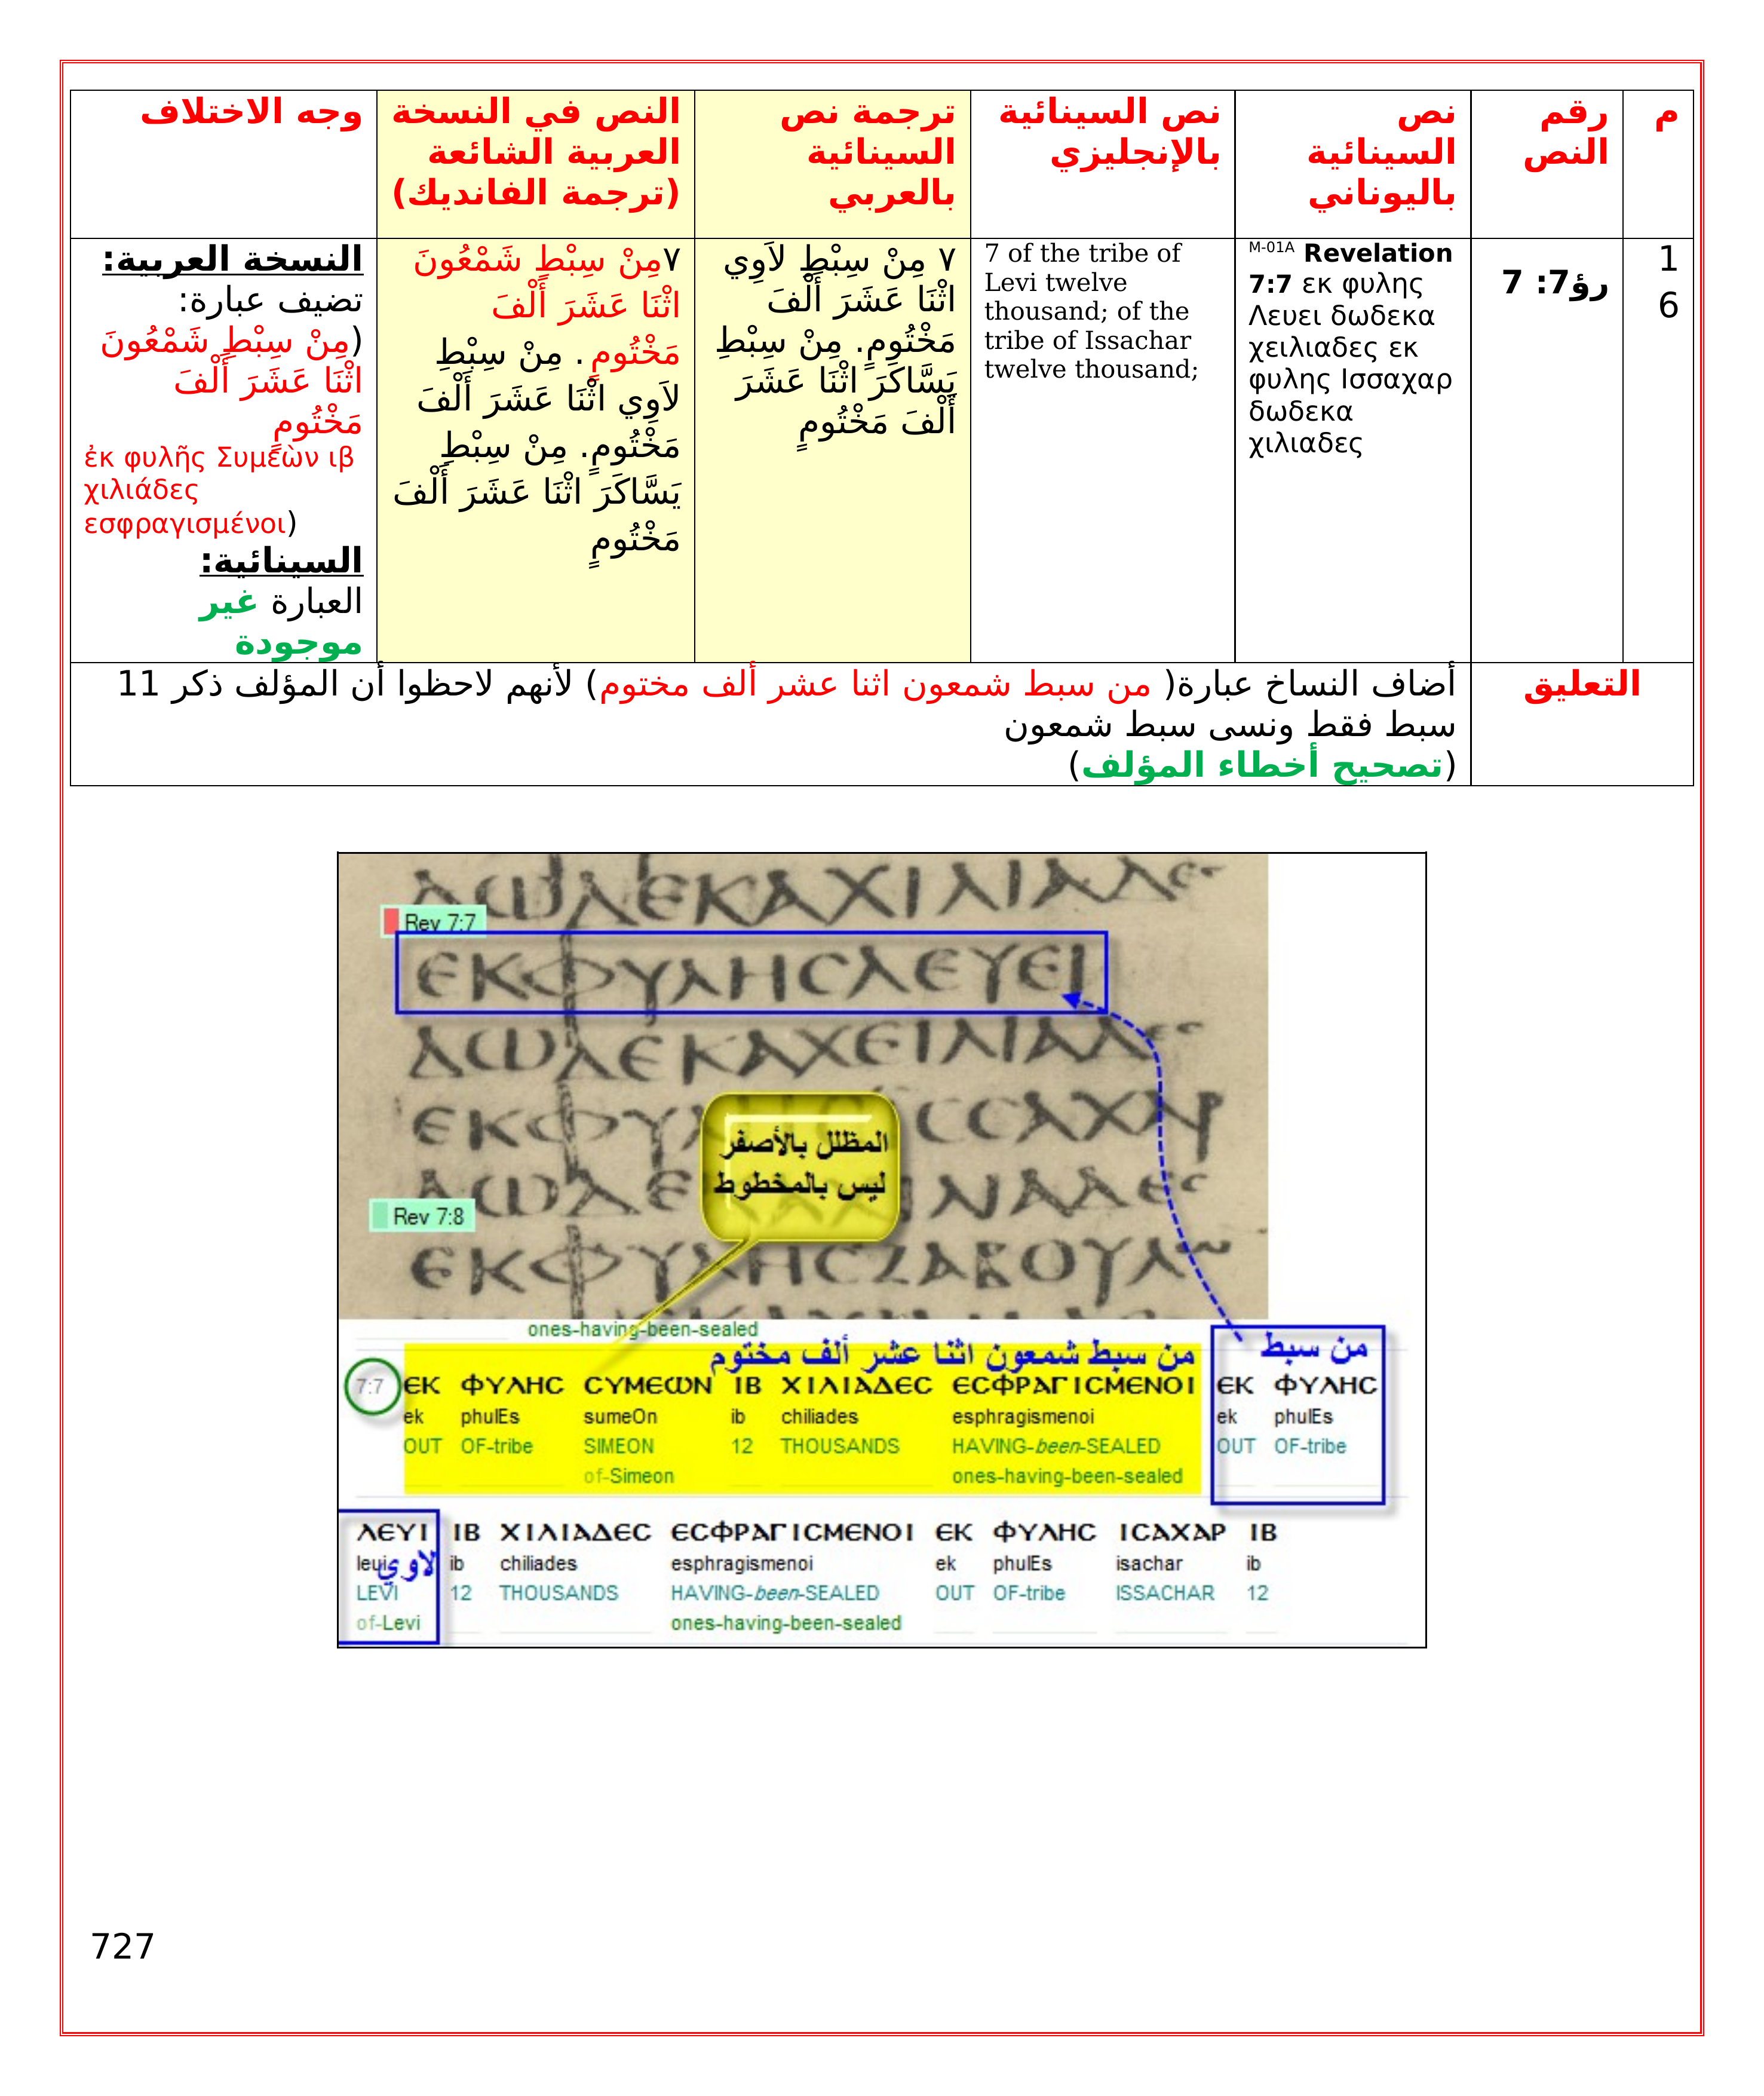 م
رقم
النص
نص
السينائية
باليوناني
نص السينائية
بالإنجليزي
ترجمة نص
السينائية
بالعربي
النص في النسخة
العربية الشائعة
(ترجمة الفانديك)
وجه الاختلاف
1
6
رؤ7: 7
M-01A Revelation
7:7 εκ φυλης
Λευει δωδεκα
χειλιαδες εκ
φυλης Ισσαχαρ
δωδεκα
χιλιαδες
7 of the tribe of
Levi twelve
thousand; of the
tribe of Issachar
twelve thousand;
٧ مِنْ سِبْطِ لاَوِي
اثْنَا عَشَرَ أَلْفَ
مَخْتُومٍ. مِنْ سِبْطِ
يَسَّاكَرَ اثْنَا عَشَرَ
أَلْفَ مَخْتُومٍ
٧مِنْ سِبْطِ شَمْعُونَ
اثْنَا عَشَرَ أَلْفَ
مَخْتُومٍ. مِنْ سِبْطِ
لاَوِي اثْنَا عَشَرَ أَلْفَ
مَخْتُومٍ. مِنْ سِبْطِ
يَسَّاكَرَ اثْنَا عَشَرَ أَلْفَ
مَخْتُومٍ
النسخة العربية:
تضيف عبارة:
(مِنْ سِبْطِ شَمْعُونَ
اثْنَا عَشَرَ أَلْفَ
مَخْتُومٍ
ἐκ φυλῆς Συμεὼν ιβ
χιλιάδες
εσφραγισμένοι)
السينائية:
العبارة غير
موجودة
التعليق
أضاف النساخ عبارة( من سبط شمعون اثنا عشر ألف مختوم) لأنهم لاحظوا أن المؤلف ذكر 11
سبط فقط ونسى سبط شمعون
(تصحيح أخطاء المؤلف)
ΔΩΔΕΚΑΧΙΛΙΑΔΕϹ
Rev 7:7
ΕΚΦΥΛΗϹΛΕΥΕΙ
ΔΩΔΕΚΑΧΕΙΛΙΑΔΕϹ
ΕΚΦΥΛ ϹϹΑΧΑΡ
المظلل بالأصفر
ليس بالمخطوط
ΔΩΔΕ ΛΙΑΔΕϹ
Rev 7:8
ΕΚΦΥΛΗϹΖΑΒΟΥΛ
ones-having-been-sealed
من سبط شمعون اثنا عشر ألف مختوم
من سبط
7:7 ΕΚ ΦΥΛΗϹ ϹΥΜΕΩΝ ΙΒ ΧΙΛΙΑΔΕϹ ΕϹΦΡΑΓΙϹΜΕΝΟΙ ΕΚ ΦΥΛΗϹ
ek phulEs sumeOn ib chiliades esphragismenoi ek phulEs
OUT OF-tribe SIMEON 12 THOUSANDS HAVING-been-SEALED OUT OF-tribe
of-Simeon ones-having-been-sealed
ΛΕΥΙ ΙΒ ΧΙΛΙΑΔΕϹ ΕϹΦΡΑΓΙϹΜΕΝΟΙ ΕΚ ΦΥΛΗϹ ΙϹΑΧΑΡ ΙΒ
leui ib chiliades esphragismenoi ek phulEs isachar ib
لاوي
LEVI 12 THOUSANDS HAVING-been-SEALED OUT OF-tribe ISSACHAR 12
of-Levi ones-having-been-sealed
727